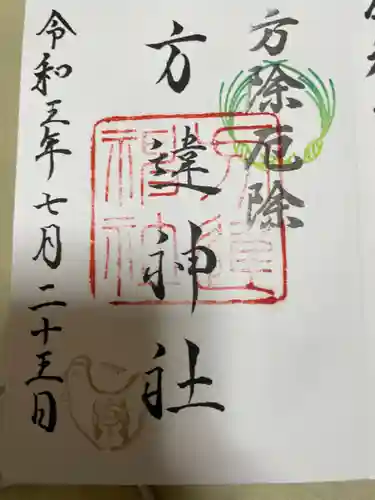 方除厄除
方違神社
令和三年七月二十三日